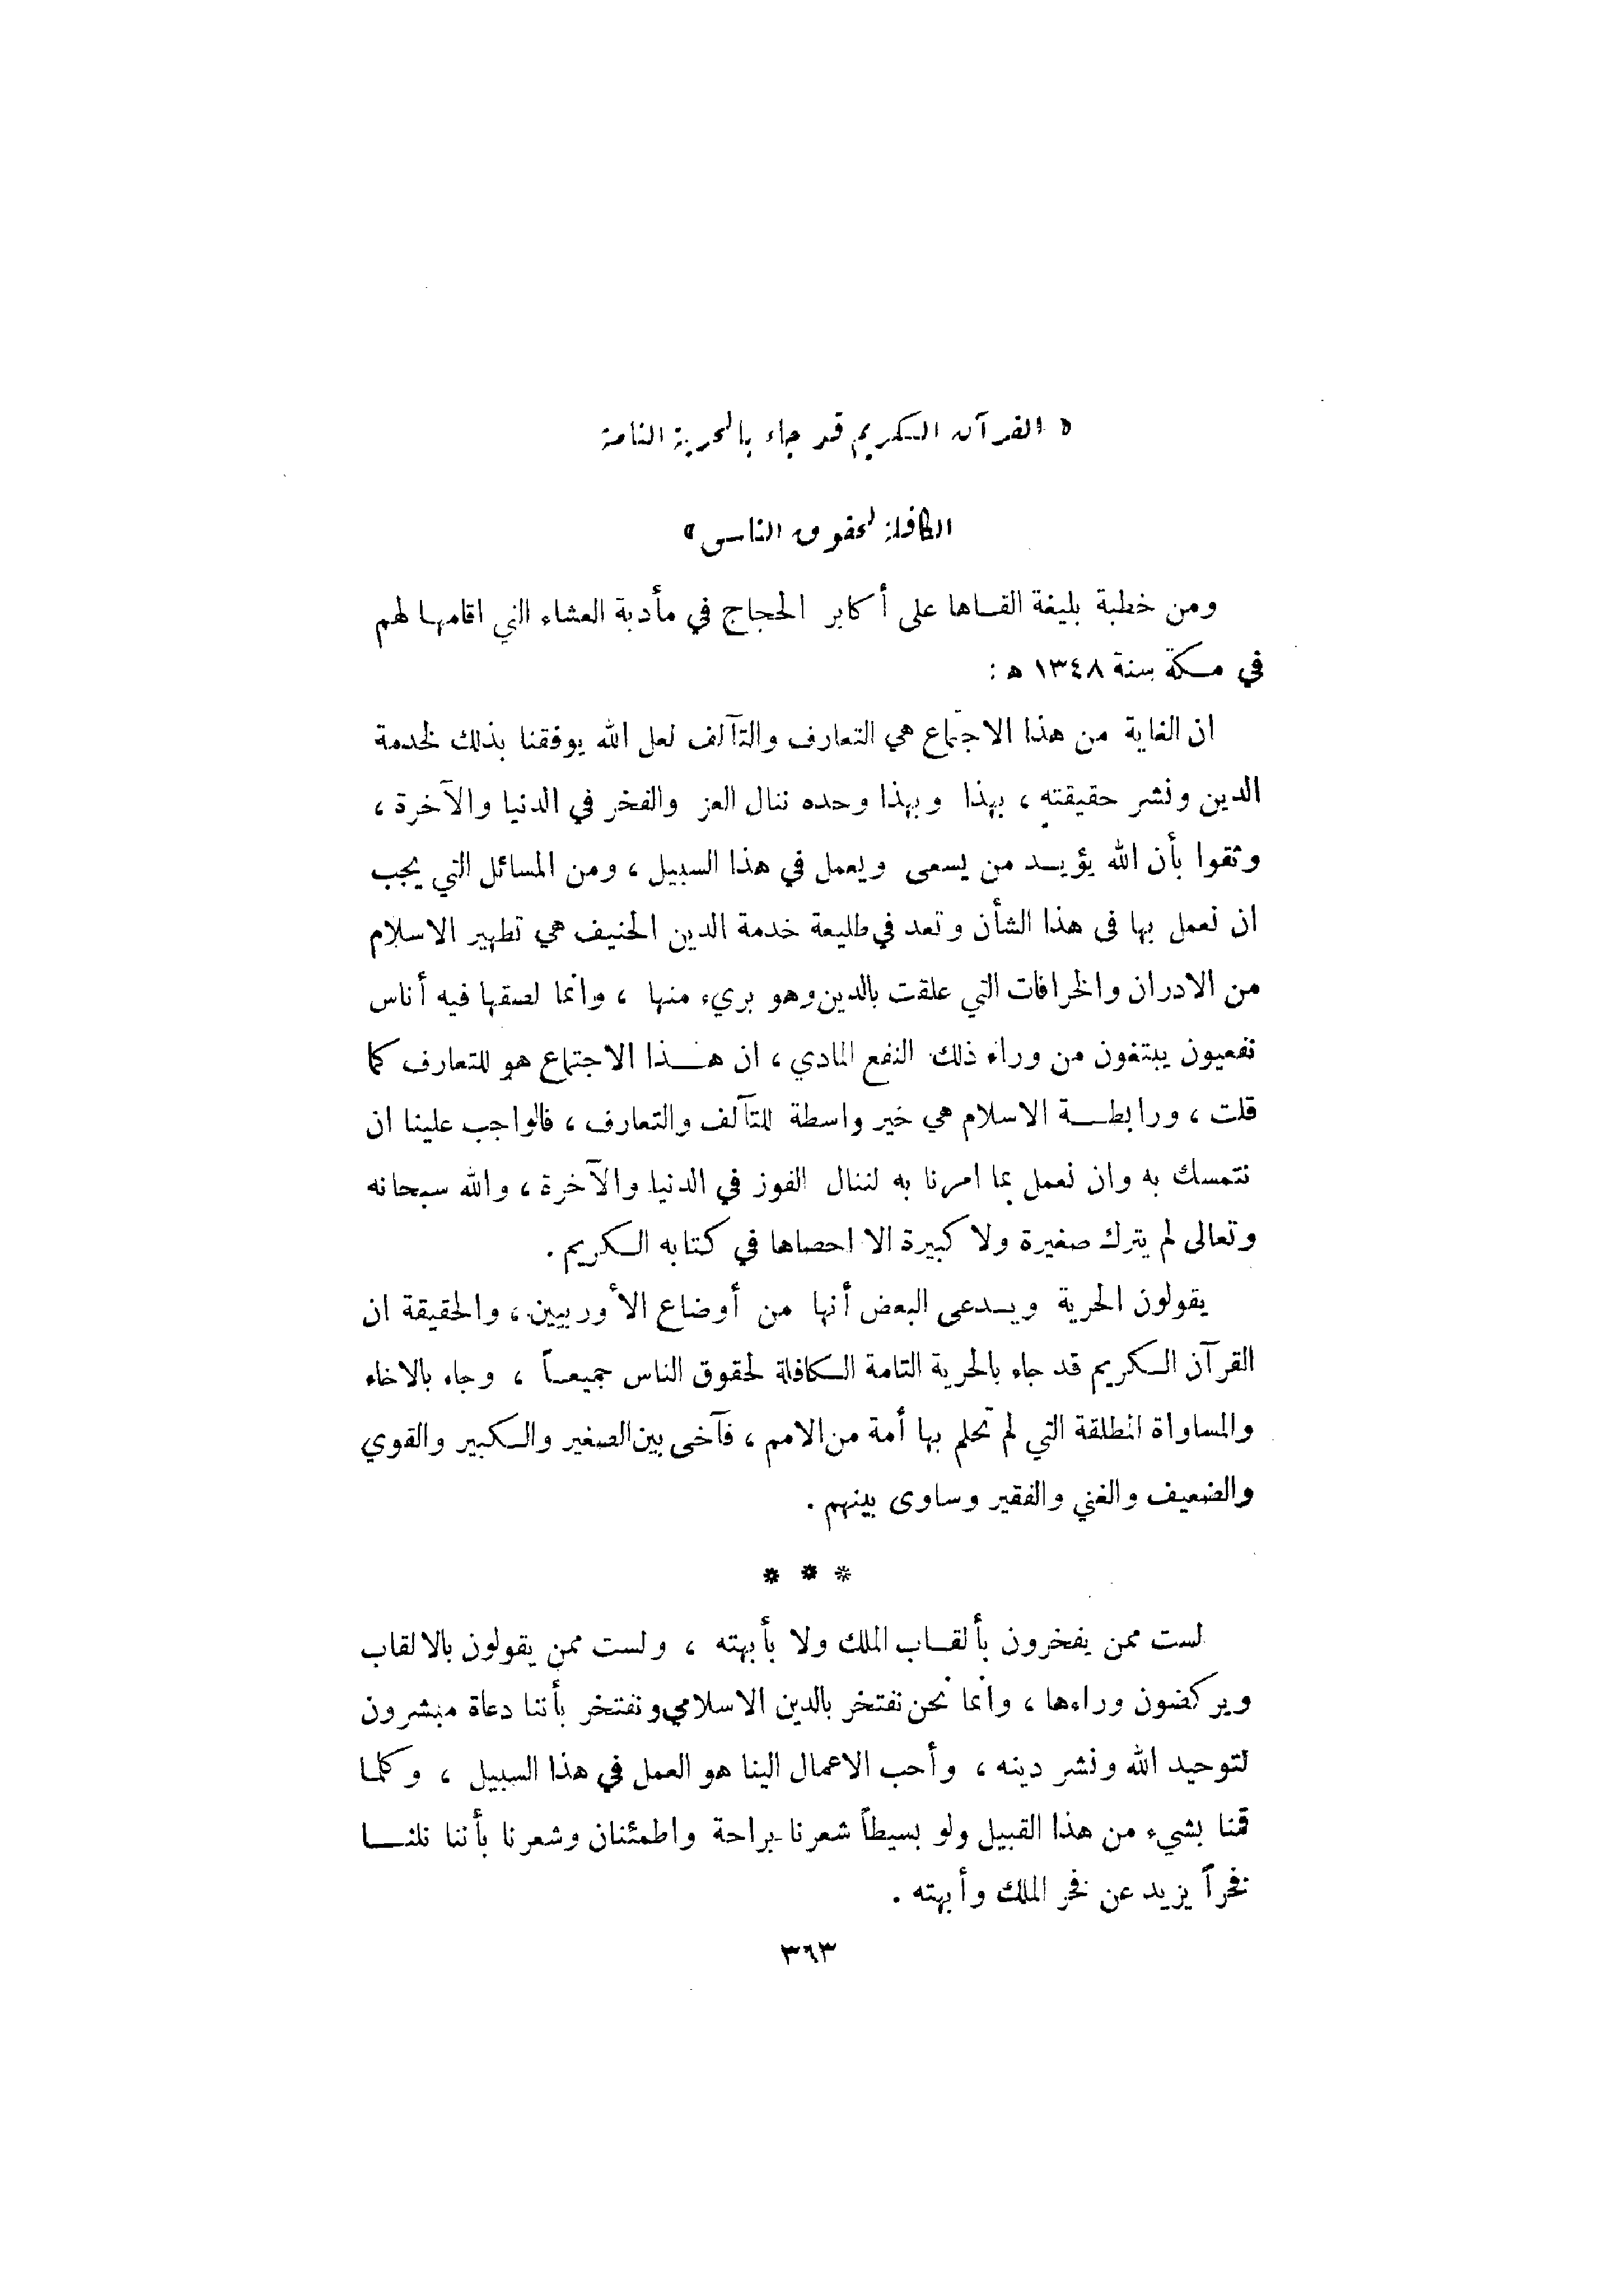 « القرآن الكريم قد جاء بالحرية التامة
الكافلة لحقوق الناس »
ومن خطبة بليغة القاها على أكابر الحجاج في مأدبة العشاء التي اقامها لهم
في مكة سنة ١٣٤٨ ه :
ان الغاية من هذا الاجتماع هي التعارف والتآلف لعل الله يوفقنا بذلك لخدمة
الدين ونشر حقيقته ، بهذا وبهذا وحده ننال العز والفخر في الدنيا والآخرة ،
وثقوا بأن الله يؤيد من يسعى ويعمل في هذا السبيل ، ومن المسائل التي يجب
ان نعمل بها فى هذا الشأن وتعد في طليعة خدمة الدين الحنيف هي تطهير الاسلام
من الادران والخرافات التي علقت بالدين وهو بريء منها ، وانما لصقها فيه أناس
نفعيون يبتغون من وراء ذلك النفع المادي ، ان هذا الاجتماع هو للتعارف كما
قلت ، ورابطة الاسلام هي خير واسطة للتآلف والتعارف ، فالواجب علينا ان
نتمسك به وان نعمل بما امرنا به لننال الفوز في الدنيا والآخرة ، والله سبحانه
وتعالى لم يترك صغيرة ولا كبيرة الا احصاها في كتابه الكريم .
يقولون الحرية ويدعى البعض أنها من أوضاع الأوربيين ، والحقيقة ان
القرآن الكريم قد جاء بالحرية التامة الكافلة لحقوق الناس جميعاً ، وجاء بالاخاء
والمساواة المطلقة التي لم تحلم بها أمة من الامم ، فآخى بين الصغير والكبير والقوي
والضعيف والغني والفقير وساوى بينهم .
* * *
لست ممن يفخرون بألقاب الملك ولا بأبهته ، ولست ممن يقولون بالالقاب
ويركضون وراءها ، وانما نحن نفتخر بالدين الاسلامي ونفتخر بأننا دعاة مبشرون
لتوحيد الله ونشر دينه ، وأحب الاعمال الينا هو العمل في هذا السبيل ، وكلما
قمنا بشيء من هذا القبيل ولو بسيطاً شعرنا براحة واطمئنان وشعرنا بأننا نلنا
فخراً يزيد عن فخر الملك وأبهته .
٣٦٣